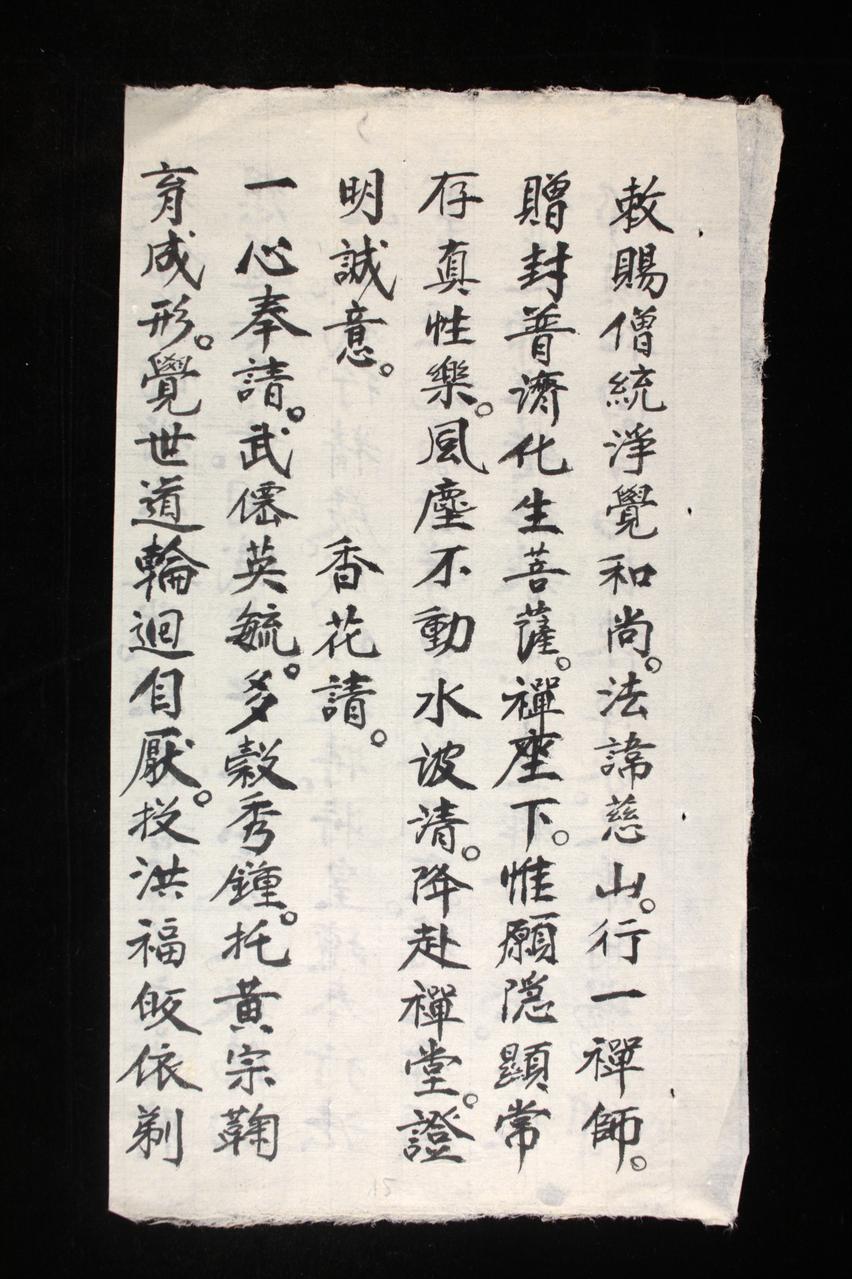 敕賜僧統淨覺和尚。法諱慈山。行一禪師。
贈封普濟化生菩薩。禪座下。惟願隐顕常
存真性樂。風塵不動水波清。降赴禪堂。證
明誠意。　　香花請。
一心奉請。武僊英毓。多穀秀鍾。托黃宗鞠
育成形。覺世道輪迴自厭。投洪福皈依剃